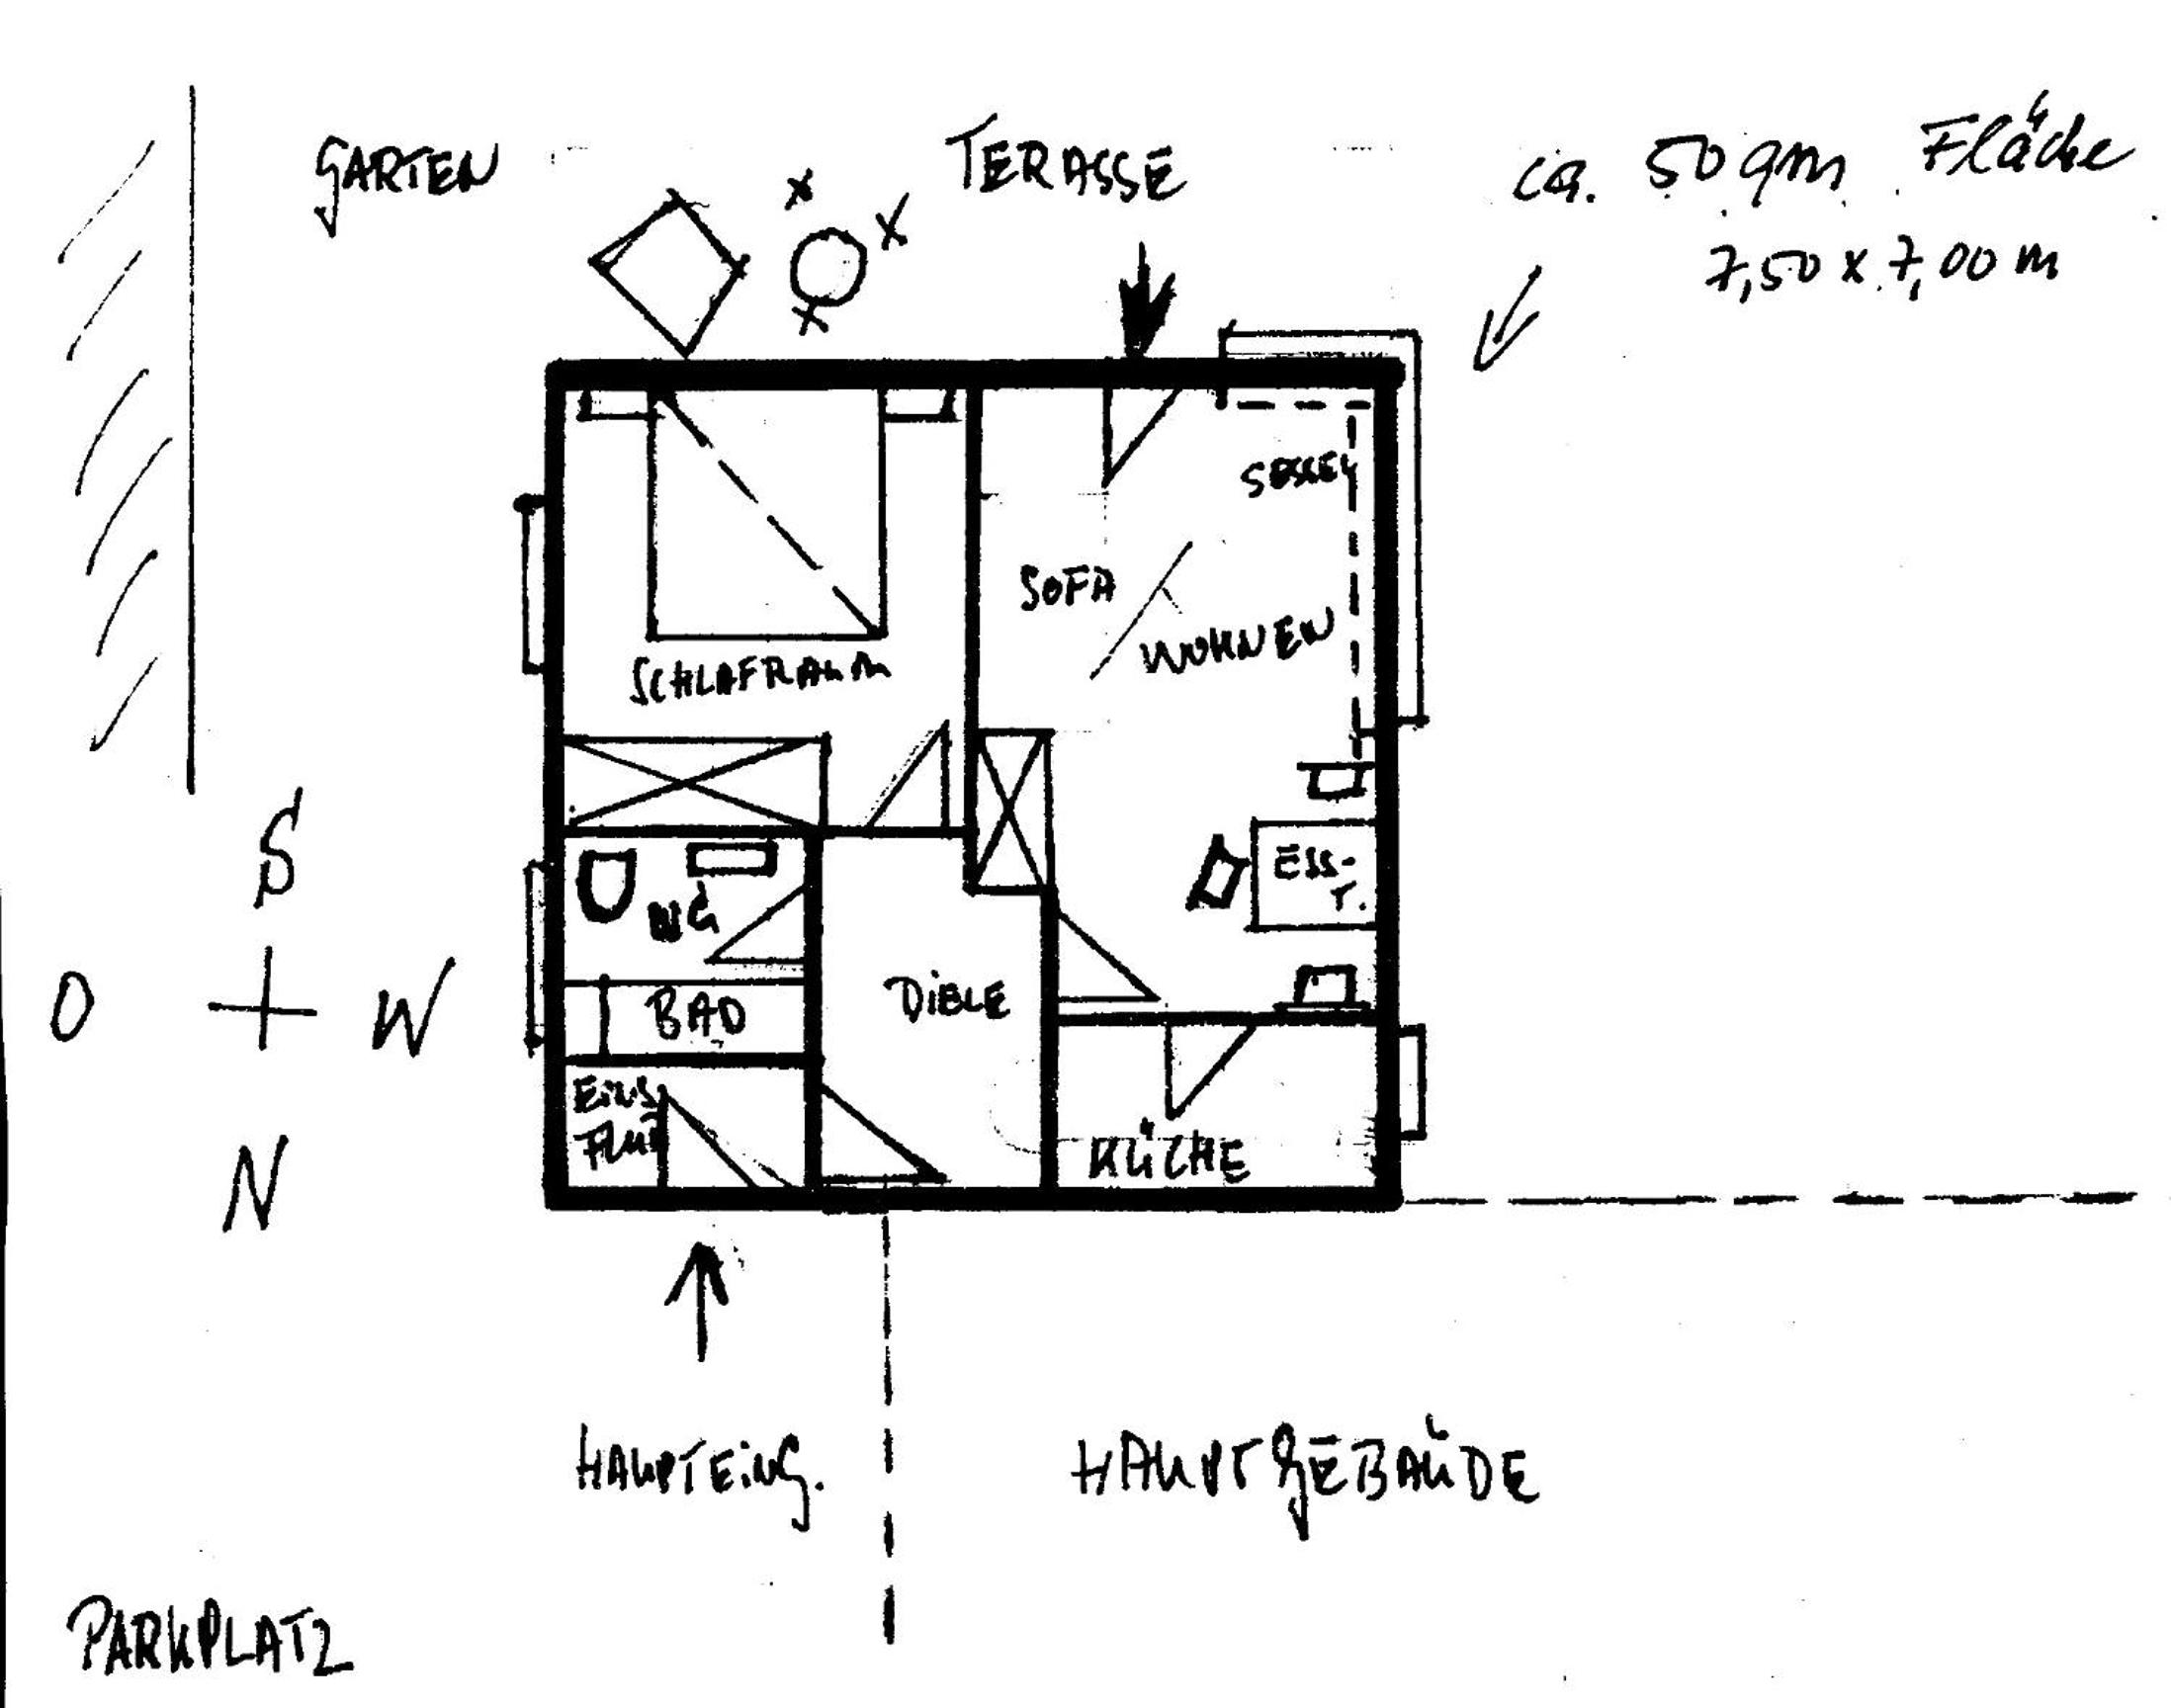 GARTEN
TERASSE
ca. 50 qm Fläche
7,50 x 7,00 m
SESSEL
SOFA
WOHNEN
SCHLAFRAUM
S
O
W
N
ESS-
T.
WC
DIELE
BAD
KÜCHE
HAUPTEING.
HAUPTGEBAÜDE
PARKPLATZ